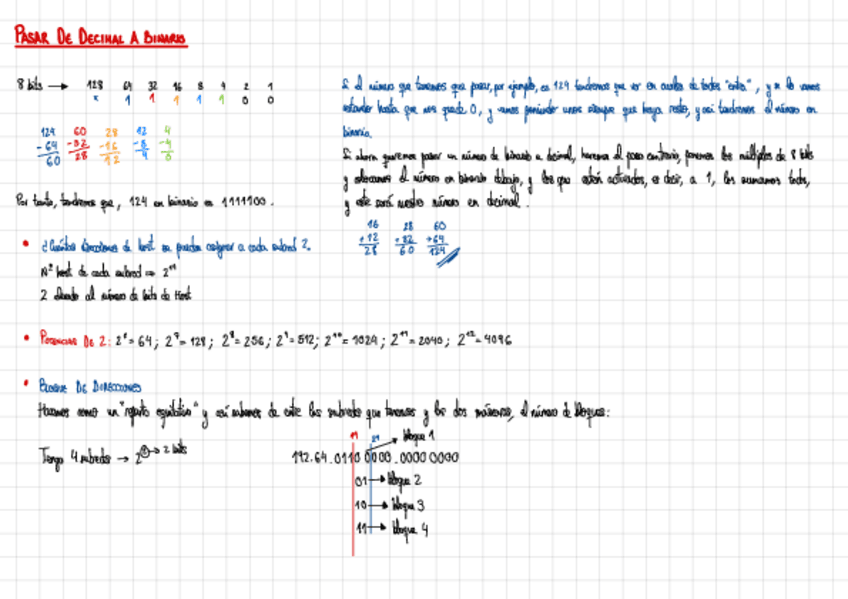 PASAR DE DECIMAL A BINARIO
8 bits → 128 64 32 16 8 4 2 1
x 1 1 1 1 1 0 0
124 60 28 12 4
-64 -32 -16 -8 -4
60 28 12 4 0
Por tanto, tendremos que, 124 en binario es 1111100.
Si el número que tenemos que pasar, por ejemplo, es 124 tendremos que ver en cuales de todos "entra", y se lo vamos
restando hasta que nos quede 0, y vamos poniendo unos siempre que haya resto, y así tendremos el número en
binario.
Si ahora queremos pasar un número de binario a decimal, haremos el paso contrario, ponemos los múltiplos de 8 bits
y colocamos el número en binario debajo, y los que estén activados, es decir, a 1, los sumamos todos,
y este será nuestro número en decimal.
16 28 60
+12 +32 +64
28 60 124
• ¿Cuántas direcciones de host se pueden asignar a cada subred?
Nº host de cada subred = 2ⁿ
2 elevado al número de bits de Host
• POTENCIAS DE 2: 2⁶= 64; 2⁷= 128; 2⁸= 256; 2⁹= 512; 2¹⁰= 1024; 2¹¹= 2040; 2¹²= 4096
• BLOQUE DE DIRECCIONES
Hacemos como un "reparto equitativo" y así sabemos de entre las subredes que tenemos y los dos números, el número de bloques:
Tengo 4 subredes → 2² → 2 bits
19 21 bloque 1
192.64.0110 0000.0000 0000
01 → bloque 2
10 → bloque 3
11 → bloque 4